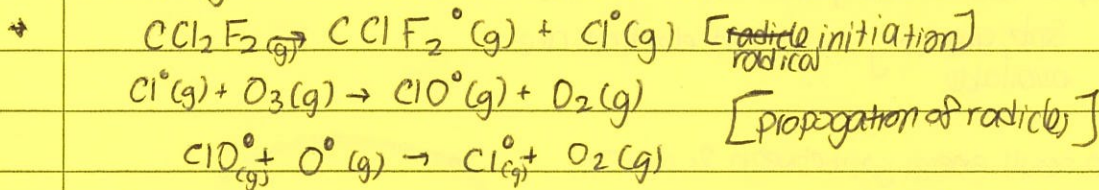 CCl2F2(g) → CClF2°(g) + Cl°(g) [radicle radical initiation]
Cl°(g) + O3(g) → ClO°(g) + O2(g)
[propogation of radicles]
ClO°(g) + O°(g) → Cl°(g) + O2(g)